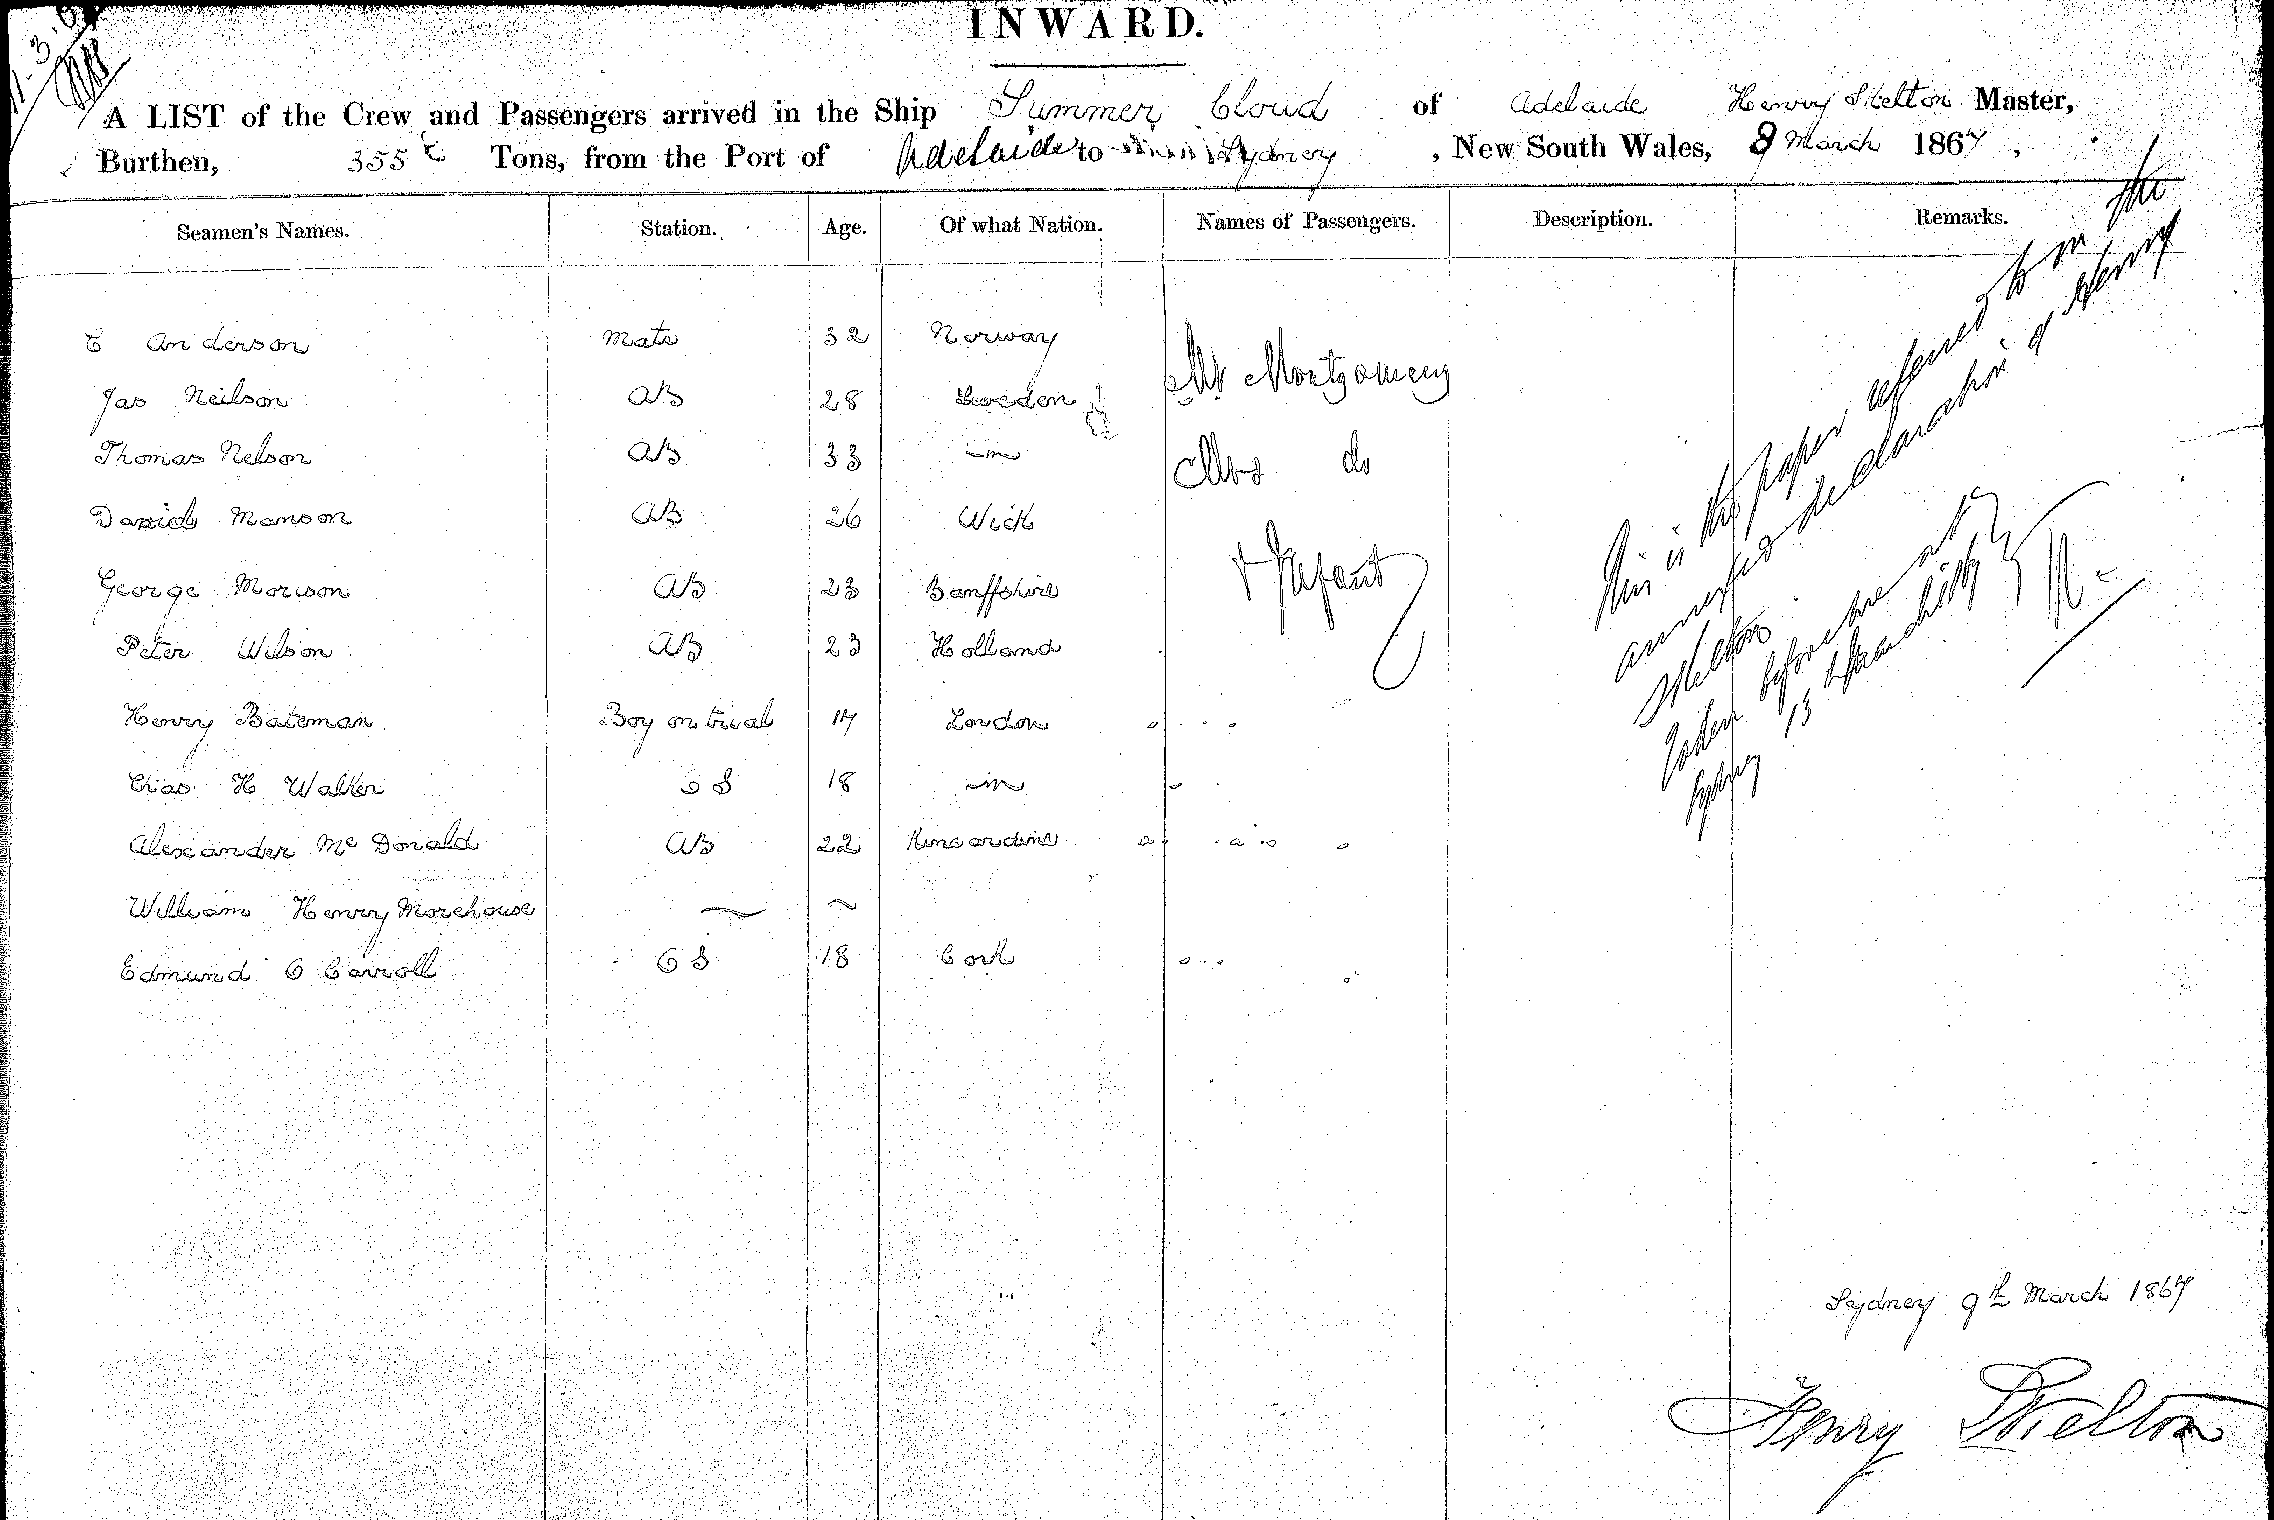 INWARD.
A LIST of the Crew and Passengers arrived in the Ship Summer Cloud of Adelaide Henry Skelton Master,
Burthen, 355 Tons, from the Port of Adelaide to Sydney, New South Wales, 9 March 1867,
Seamen's Names. Station. Age. Of what Nation. Names of Passengers. Description. Remarks.
C Anderson Mate 32 Norway
Mr Montgomery
Jas Neilson AB 28 Sweden
Thomas Nelson AB 33 —"—
Mrs do
David Manson AB 26 Wick
& Infant
George Morison AB 23 Banffshire
Peter Wilson AB 23 Holland
Henry Bateman Boy on trial 17 London
Chas H Walker OS 18 —"—
Alexander McDonald AB 22 Kincardine
William Henry Morehouse — ~
Edmund O Carroll OS 18 Cork
This is the paper referred to in the
annexed declaration of Henry
Skelton
taken before me at
Sydney 13 March 1867
Sydney 9th March 1867
Henry Skelton